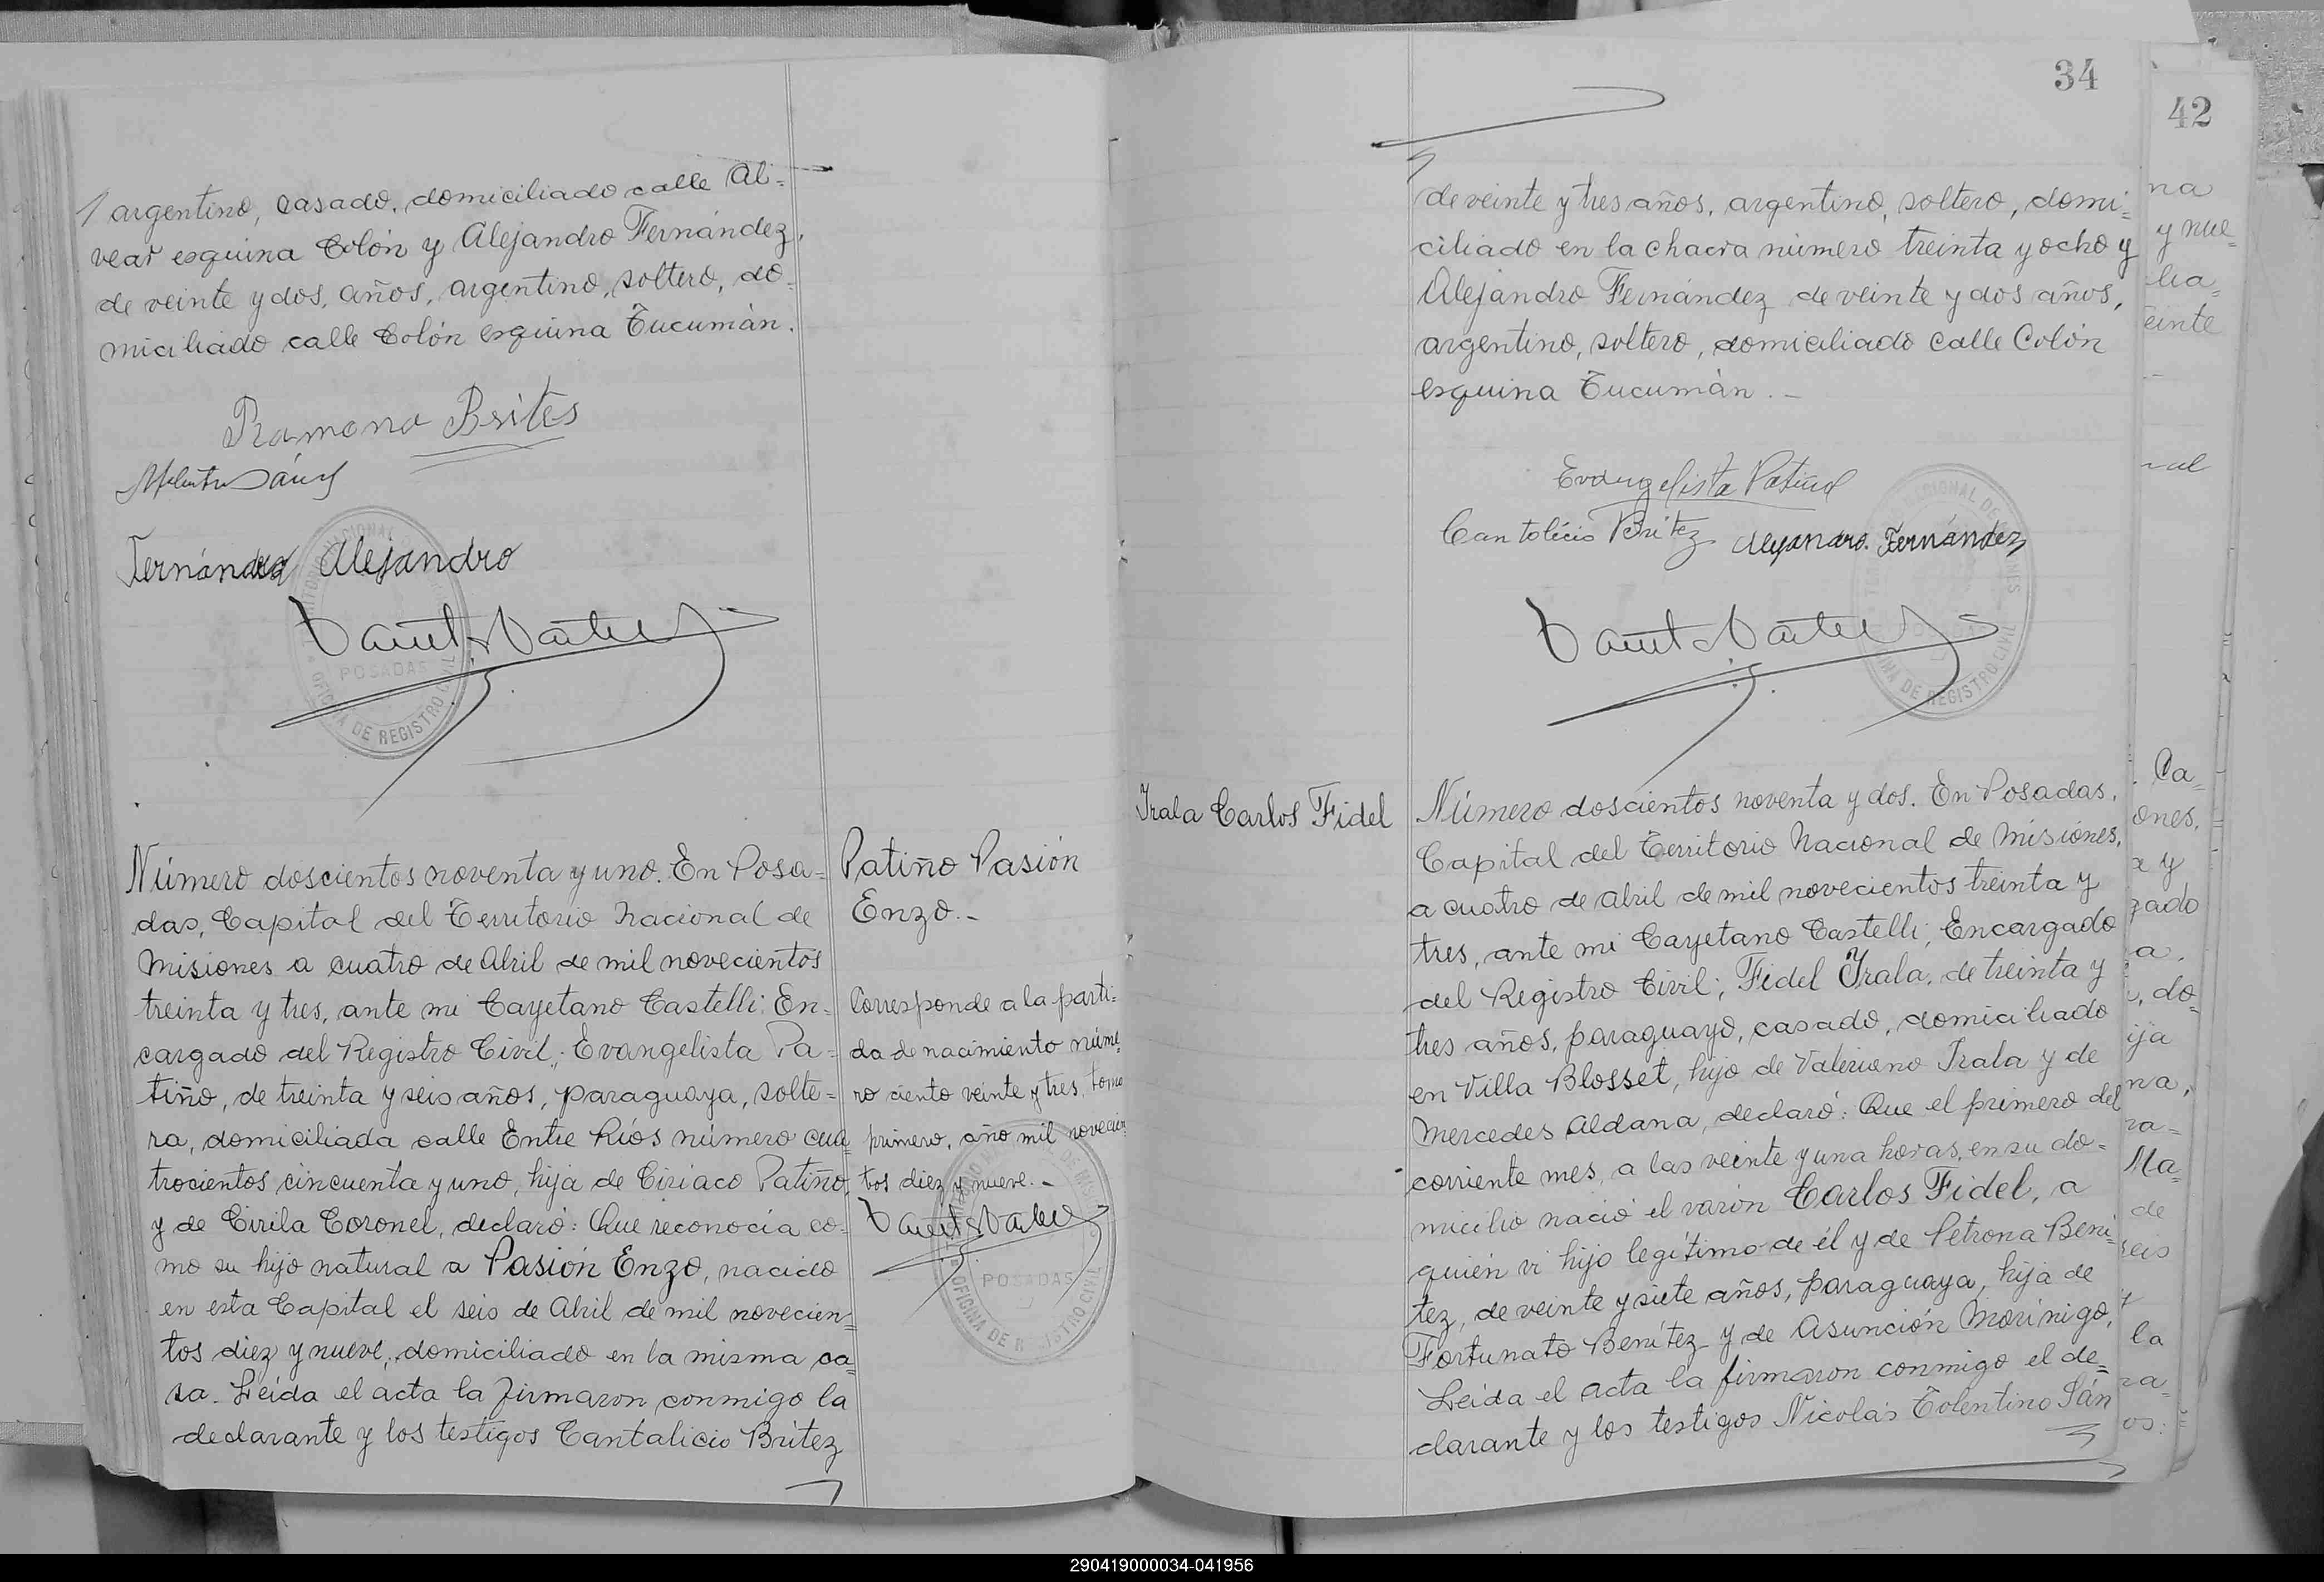 argentino, casado, domiciliado calle Al-
vear esquina Colón y Alejandro Fernández,
de veinte y dos, años, argentino, soltero, do-
miciliado calle Colón esquina Tucumán.
Ramona Brites
Fernández Alejandro
POSADAS
OFICINA DE REGISTRO CIVIL
Número doscientos noventa y uno. En Posa=
das, Capital del Territorio Nacional de
Misiones a cuatro de Abril de mil novecientos
treinta y tres, ante mi Cayetano Castelli; En-
cargado del Registro Civil; Evangelista Pa-
tiño, de treinta y seis años, paraguaya, solte=
ra, domiciliada calle Entre Ríos número cua
trocientos cincuenta y uno, hija de Ciriaco Patiño,
y de Cirila Coronel, declaró: Que reconocía co-
mo su hijo natural a Pasión Enzo, nacido
en esta Capital el seis de Abril de mil novecien=
tos diez y nueve, domiciliado en la misma ca=
sa. Leída el acta la firmaron conmigo la
declarante y los testigos Cantalicio Britez
Patiño Pasión
Enzo.-
Corresponde a la parti=
da de nacimiento núme
ro ciento veinte y tres, tomo
primero, año mil novecien
tos diez y nueve.-
POSADAS
34
de veinte y tres años, argentino, soltero, domi=
ciliado en la chacra número treinta y ocho y
Alejandro Fernández de veinte y dos años,
argentino, soltero, domiciliado calle Colón
esquina Tucumán.-
Evangelista Patiño
Cantolicio Britez Alejandro Fernández
OFICINA DE REGISTRO CIVIL
Irala Carlos Fidel
Número doscientos noventa y dos. En Posadas,
Capital del Territorio Nacional de Misiones,
a cuatro de Abril de mil novecientos treinta y
tres, ante mi Cayetano Castelli; Encargado
del Registro Civil; Fidel Irala, de treinta y
tres años, paraguayo, casado, domiciliado
en Villa Blosset, hijo de Valeriano Irala y de
Mercedes Aldana, declaró: Que el primero del
corriente mes, a las veinte y una horas, en su do-
micilio nació el varón Carlos Fidel, a
quién vi hijo legítimo de él y de Petrona Bení
tez, de veinte y siete años, paraguaya, hija de
Fortunato Benítez y de Asunción Morínigo,
Leída el acta la firmaron conmigo el de=
clarante y los testigos Nicolás Tolentino Sán
42
na
y nue=
lia=
einte
Ca=
ones,
a y
gado
a.
do=
ija
na,
ra=
Ma=
de
seis
la
ra=
os:
290419000034-041956